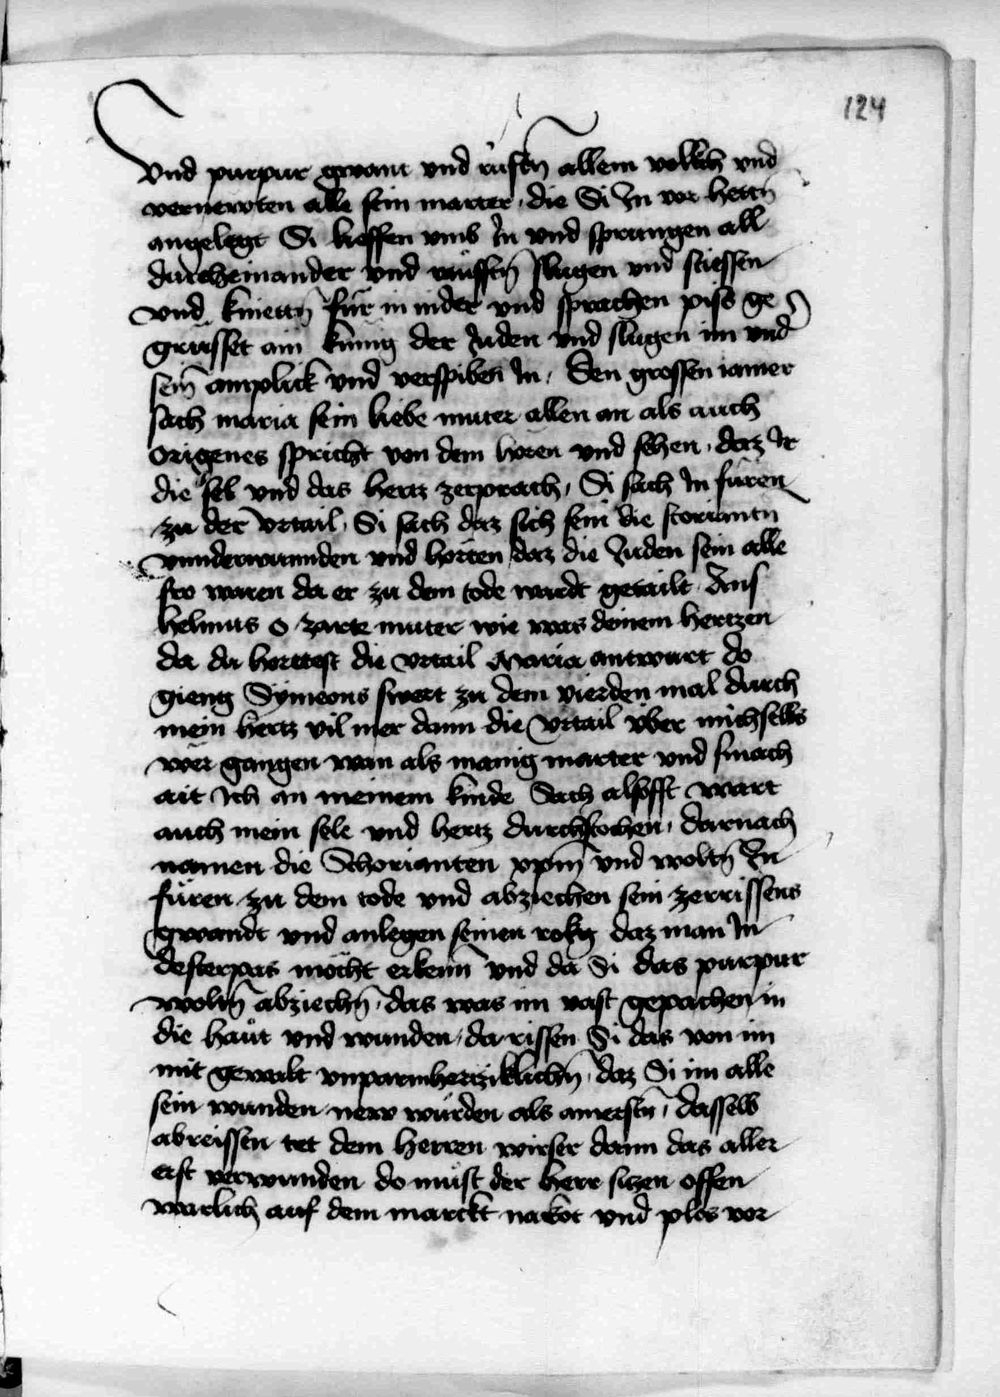 124
Vnd purpur gwant vnd rufftn̄ allem volkch vnd
vernewten alle sein marter die Si Jn vor hettn̄
angelegt Si lieffen vmb Jn vnd sprungen all
durcheinander vnd rüfftn̄ slugen vnd stiessen
vnd knietn̄ für in nider vnd sprachen piss ge
grüsset ain künig der Juden vnd slugen im vnd
sein̄ amplick vnd verspiben Jn. Den grossen iamer
sach maria sein liebe muter allen an als auch
origenes spricht von dem hören vnd sehen daz Ir
die sel vnd das hertz zerprach Si sach Jn füren
zu der vrtail Si sach daz sich sein die storiantn
vnnderwunnden vnd horten daz die Juden sein alle
fro waren da er zu dem tode wardt getailt Ans
helmus O zarte muter wie was deinem hertzen
da du horttest die vrtail Maria antwurt do
gieng Symeons swert zu dem vierden mal durch
mein hertz vil mer dann die vrtail über michselbs
wer gangen wan als manig marter vnd smach
ait Ich an meinem kinde Sach alsofft wart
auch mein sele vnd hertz durchstochen darnach
namen die Schorianten xpm̄ vnd woltn̄ Jn
füren zu dem tode vnd abziechen sein zerrissens
gwandt vnd anlegen seinen rokg daz man Jn
desterpas möcht erkenn̄ vnd da Si das purpur
woltn̄ abziechn̄ das was im vast gepachen in
die haut vnd wunden da rissen Si das von im
mit gewalt vnparmhertziklichn̄ daz Si im alle
sein wunden new wurden als amerstn̄ dasselb
abreissen tet dem herren wirser dann das aller
erst verwunden do must der herr sitzen offen
warlich auf dem marckt nakot vnd plos vor